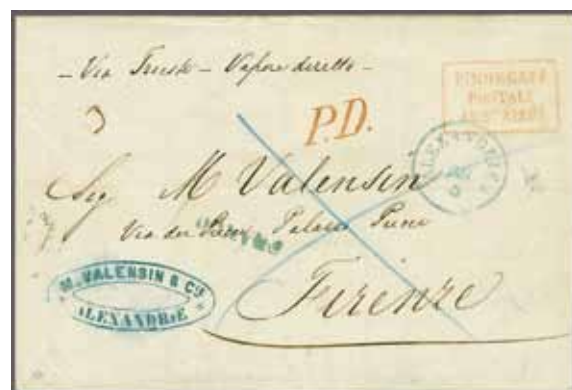 - Via Trieste - Vapore diretto -
PIROSCAFI
POSTALI
P.D.
ALEXANDRIEN
Sig M Valensin
Via dei Palazzo
FRANCO
Firenze
M. VALENSIN & Co
ALEXANDRIE